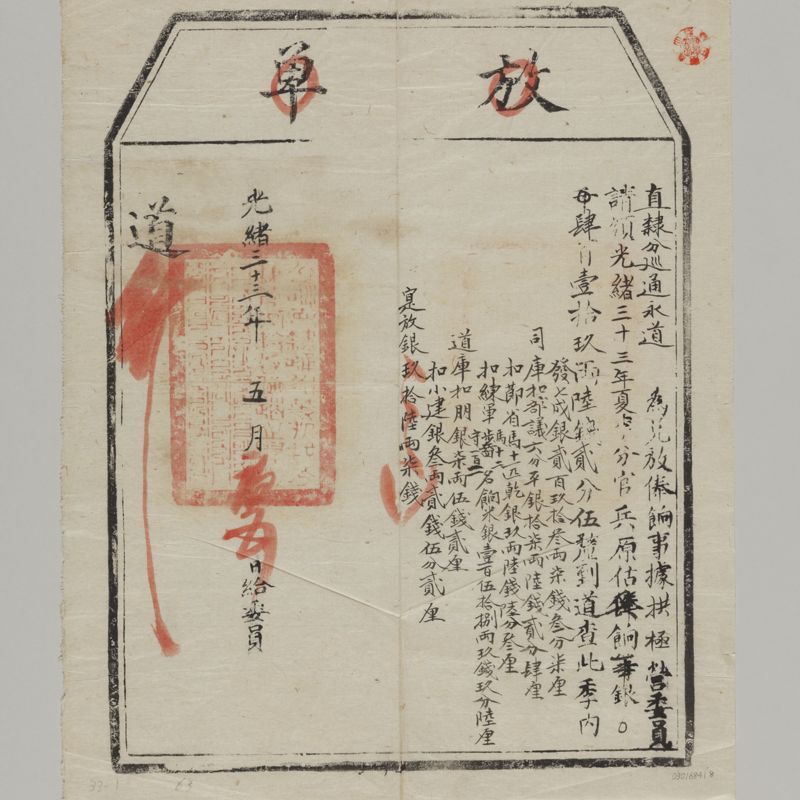 放單
直隸分巡通永道 為兌放俸餉事據拱極營委員
請領光緒三十三年夏季分官兵原估俸餉等銀〇
肆百壹拾玖兩陸錢貳分伍釐到道查此季內
發七成銀貳百玖拾叁兩柒錢叁分柒厘
司庫扣部議六分平銀拾柒兩陸錢貳分肆厘
扣節省馬十匹乾銀玖兩陸錢陸分叁厘
扣練軍馬十二守名餉米銀壹百伍拾捌兩玖錢玖分陸厘
道庫扣朋銀柒兩伍錢貳厘
扣小建銀叁兩貳錢伍分貳厘
寔放銀玖拾陸兩柒錢
光緒三十三年 五月 日給委員
道
030168418
33-1